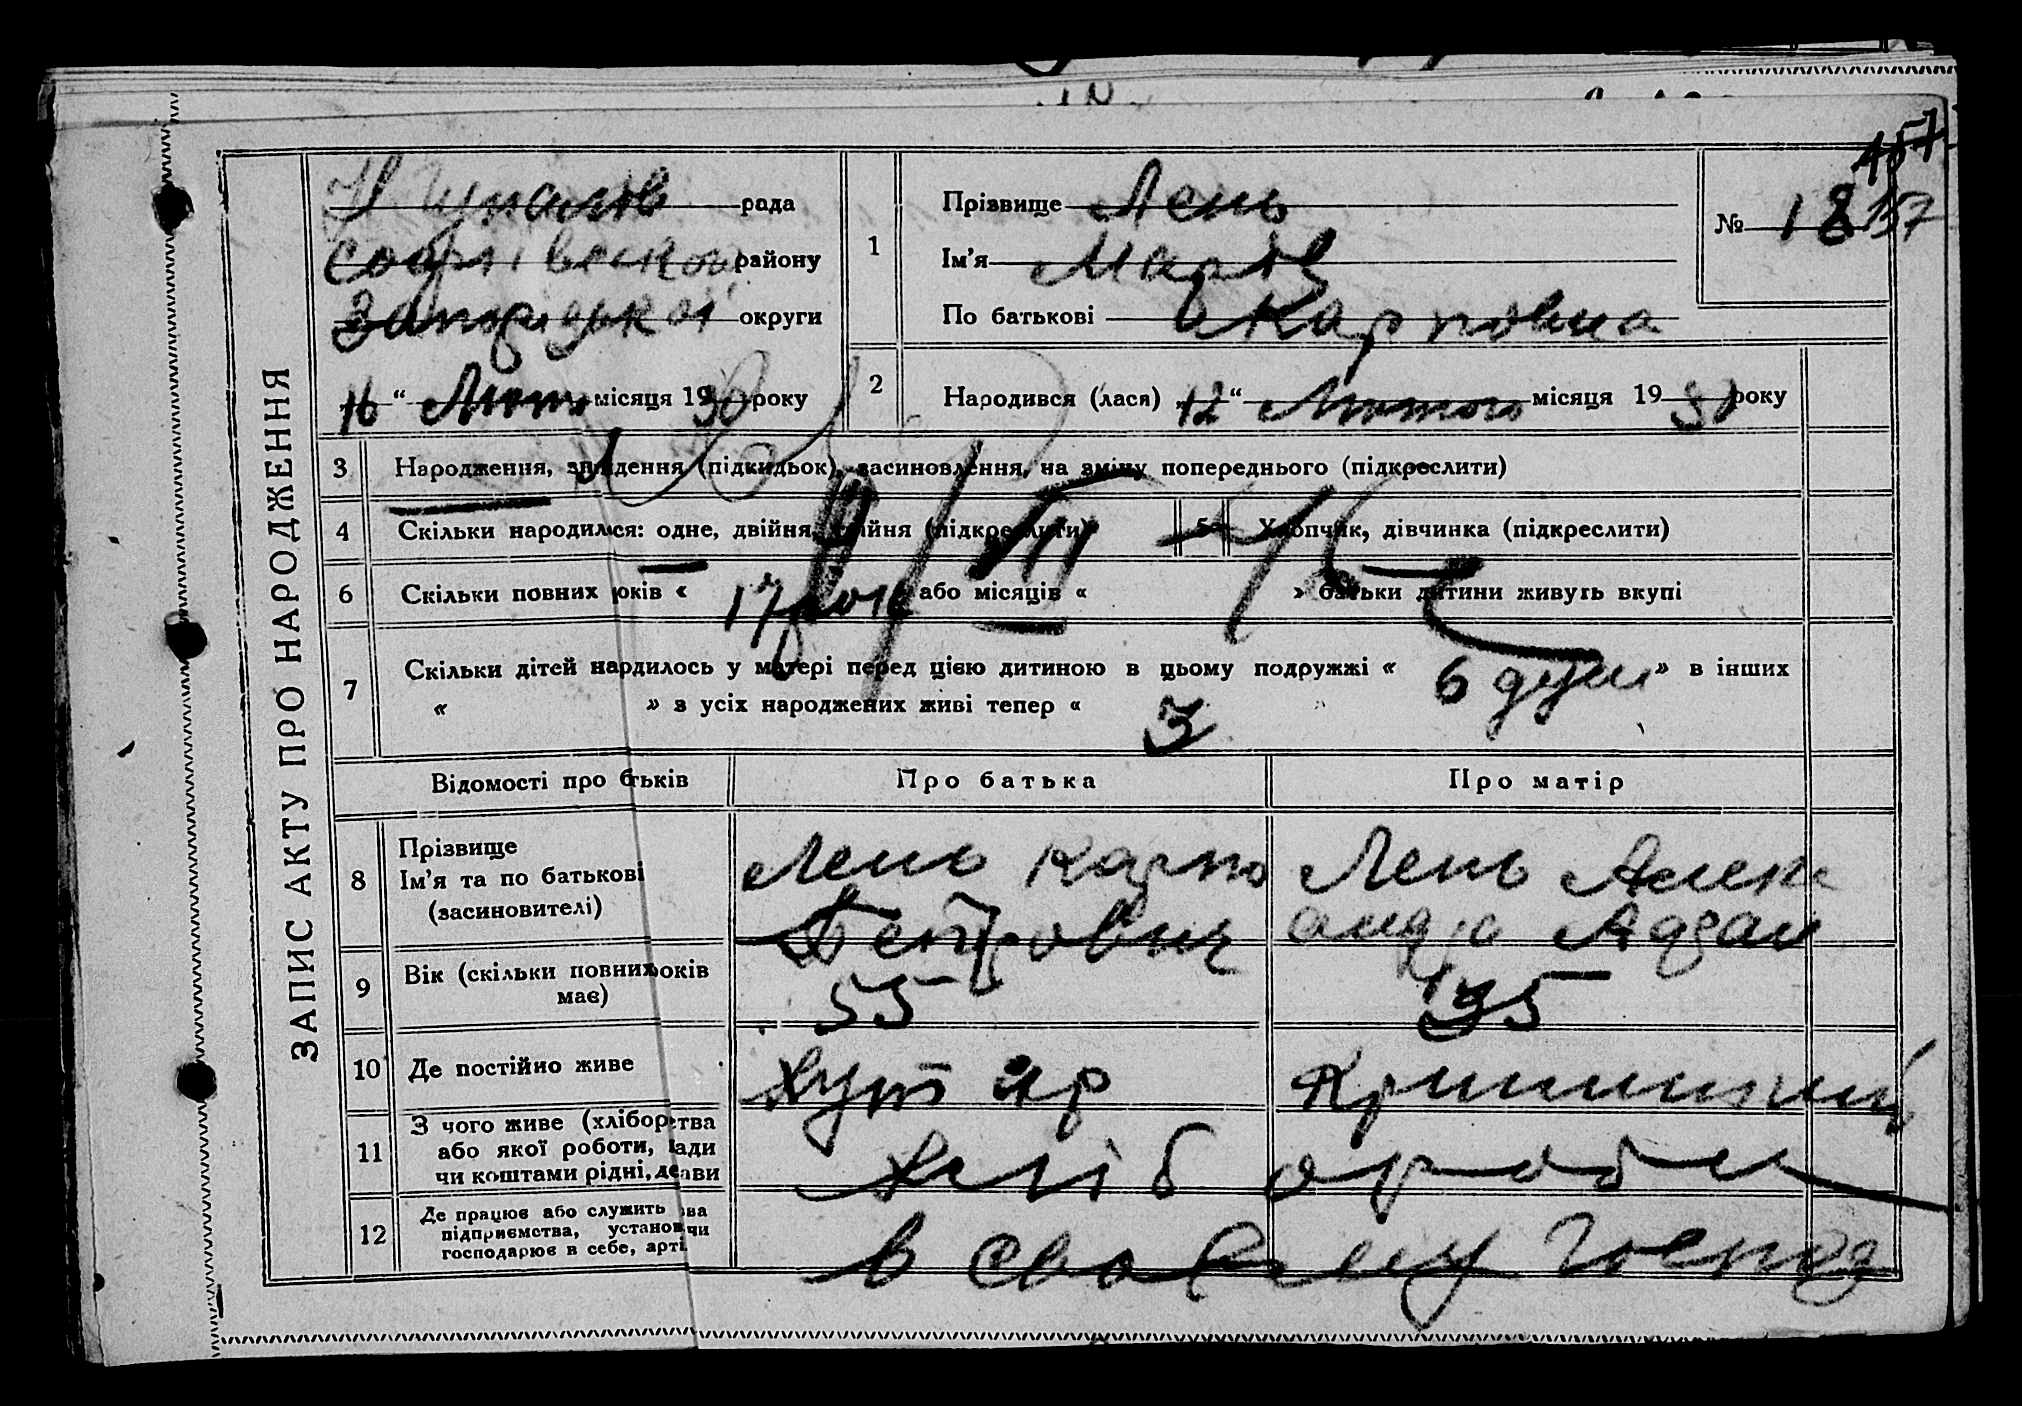 ЗАПИС АКТУ ПРО НАРОДЖЕННЯ
рада
району
округи
16 “ Лютого місяця 1930 року
1
Прізвище Лень
Ім’я Марія
По батькові Карповна
№ 18 157
157
2
Народився (лася) 12 “ Лютого місяця 1930 року
3 Народження, знайдення (підкидьок), засиновлення, на зміну попереднього (підкреслити)
4 Скільки народилися: одне, двійня, трійня (підкреслити)
5 Хлопчик, дівчинка (підкреслити)
6 Скільки повних років « 17 або місяців « » батьки дитини живуть вкупі
7 Скільки дітей нардилось у матері перед цією дитиною в цьому подружжі « 6 душ » в інших
« » з усіх народжених живі тепер « 3
Відомості про батьків Про батька Про матір
8 Прізвище
Ім’я та по батькові
(засиновителі)
Лень Карпо
Петрович
Лень Алекс
андра Адам
9 Вік (скільки повних років
має)
55
35
10 Де постійно живе
Хут Яр
11 З чого живе (хліборобства
або якої роботи,
чи коштами рідні, держави
Хліб ароби
12 Де працює або служить
підприємства, установи чи
господарює в себе, арті
в своему господ